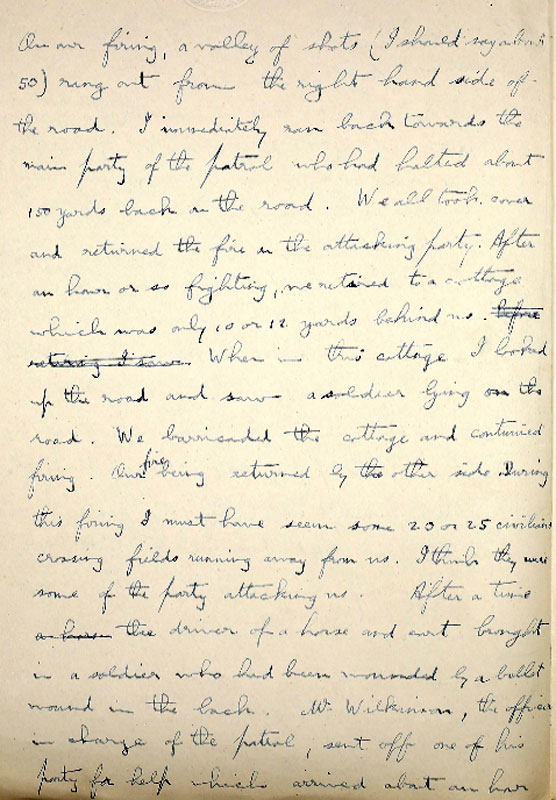 On our firing, a volley of shots (I should say about
50) rang out from the right hand side of
the road. I immediately ran back towards the
main party of the patrol who had halted about
150 yards back on the road. We all took cover
and returned the fire in the attacking party. After
an hour or so fighting, we retired to a cottage
which was only 10 or 12 yards behind us. before
retiring I saw When in this cottage I looked
up the road and saw a soldier lying on the
road. We barricaded the cottage and continued
firing. Our fire being returned by the other side During
this firing I must have seen some 20 or 25 civilians
crossing fields running away from us. I think they were
some of the party attacking us. After a time
a horse the driver of a horse and cart brought
in a soldier who had been wounded by a bullet
wound in the back. Mr Wilkinson, the officer
in charge of the patrol, sent off one of his
party for help which arrived about an hour